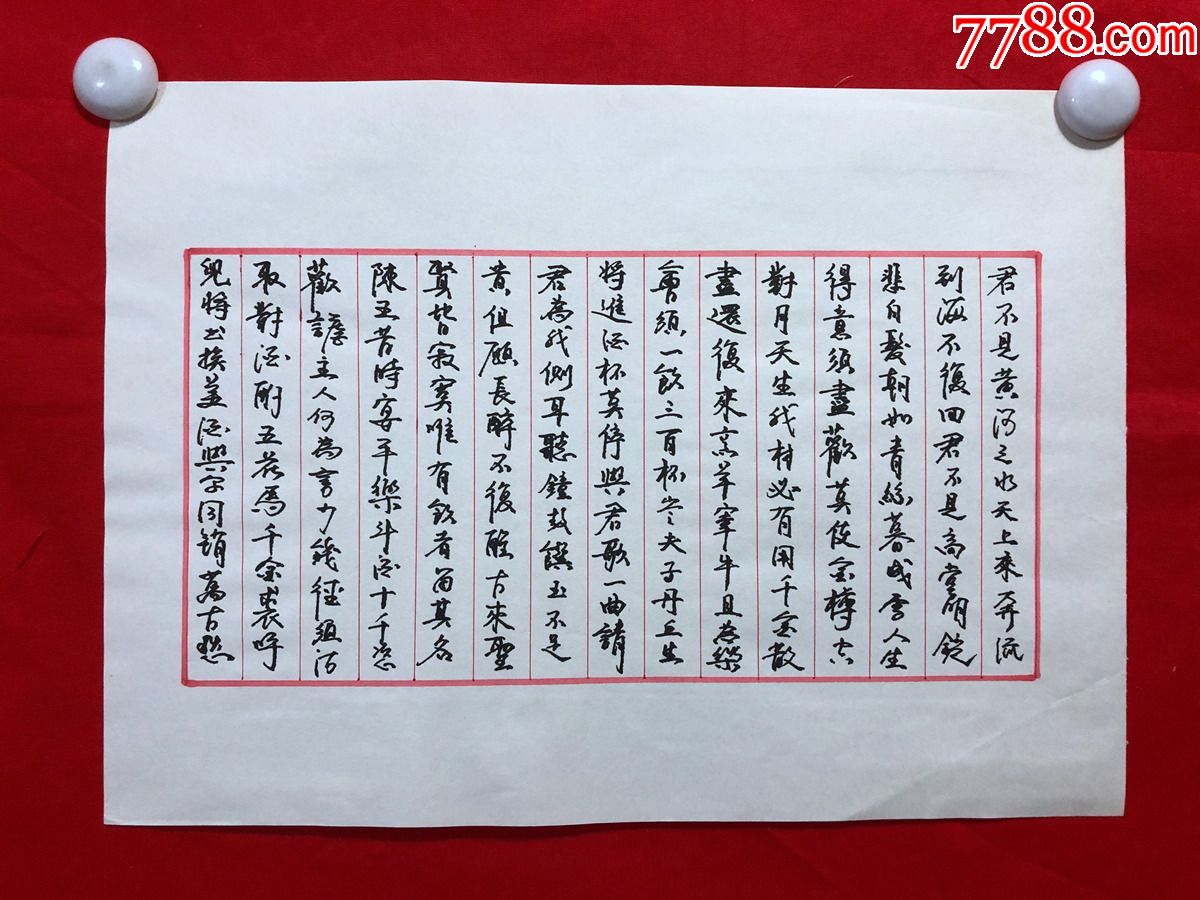 7788.com
君不見黃河之水天上來奔流
到海不復回君不見高堂明鏡
悲白髮朝如青絲暮成雪人生
得意須盡歡莫使金樽空
對月天生我材必有用千金散
盡還復來烹羊宰牛且為樂
會須一飲三百杯岑夫子丹丘生
將進酒杯莫停與君歌一曲請
君為我側耳聽鐘鼓饌玉不足
貴但願長醉不復醒古來聖
賢皆寂寞唯有飲者留其名
陳王昔時宴平樂斗酒十千恣
歡謔主人何為言少錢徑須沽
取對酒酌五花馬千金裘呼
兒將出換美酒與爾同銷萬古愁